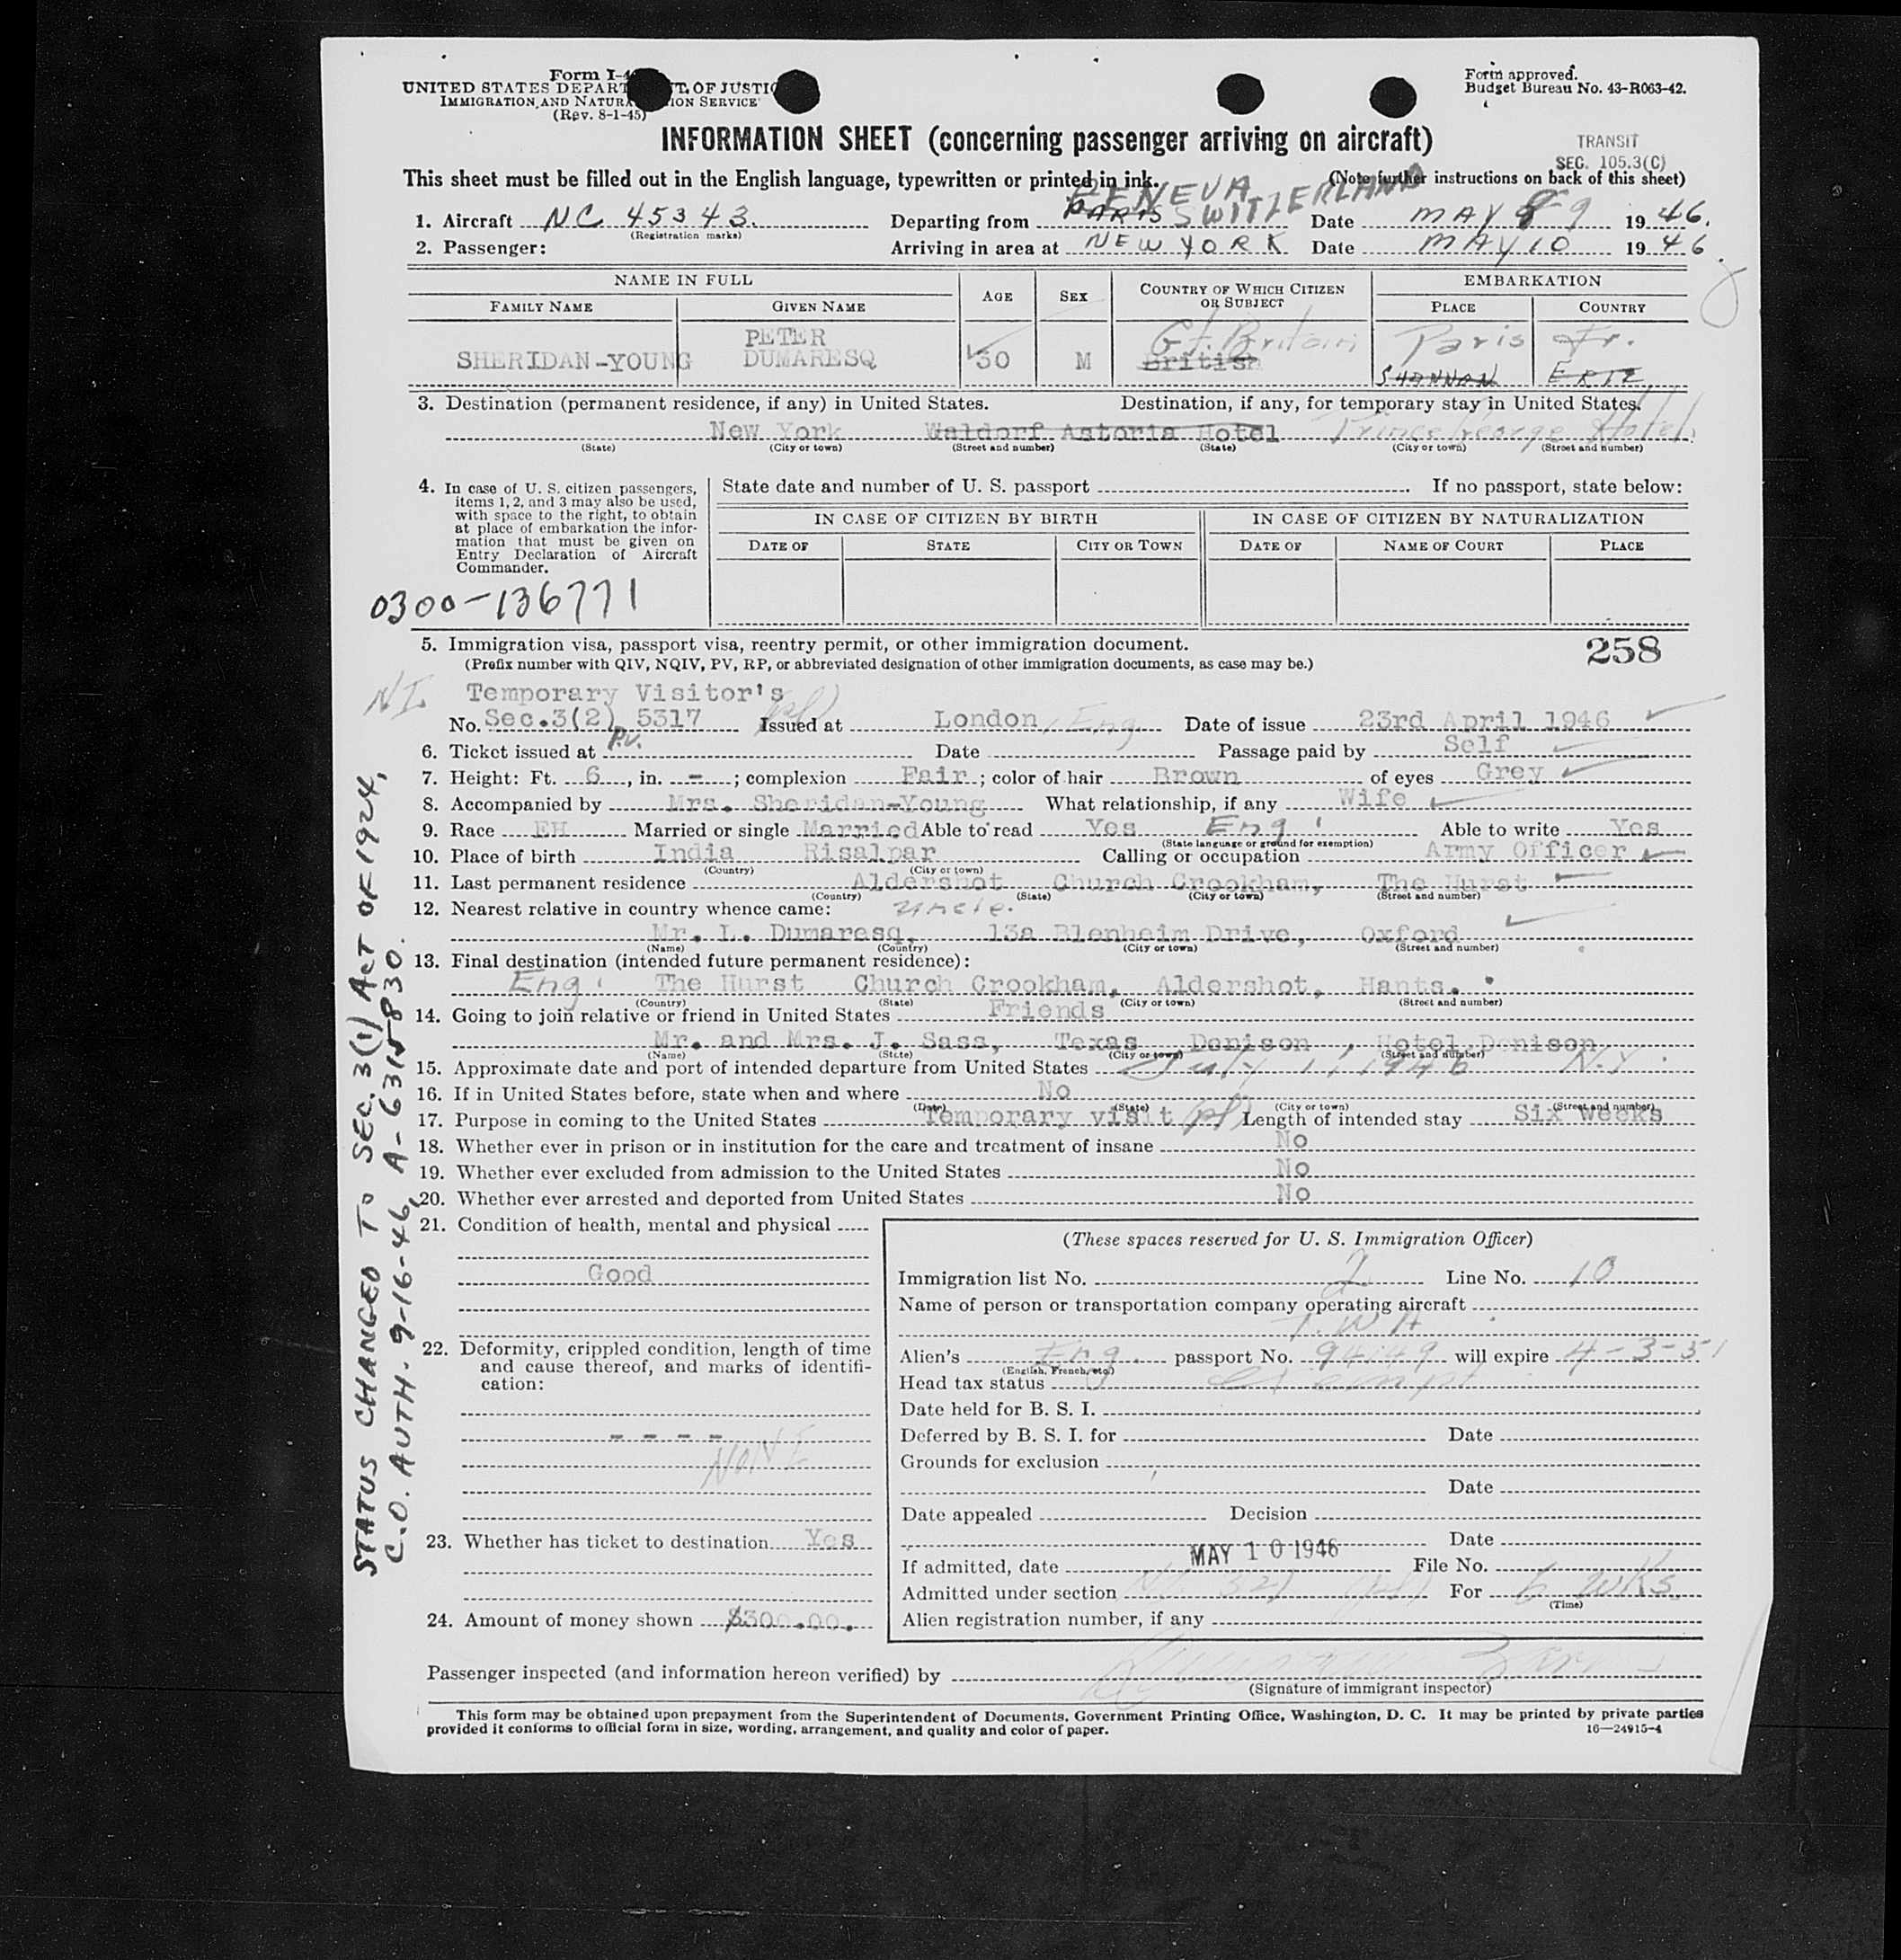 Form I-4
UNITED STATES DEPART T. OF JUSTIC
IMMIGRATION AND NATURA ION SERVICE
(Rev. 8-1-45)
Form approved.
Budget Bureau No. 43-R063-42.
INFORMATION SHEET (concerning passenger arriving on aircraft)
TRANSIT
SEC. 105.3(C)
This sheet must be filled out in the English language, typewritten or printed in ink. (Note further instructions on back of this sheet)
GENEVA
1. Aircraft NC 45343. Departing from PARIS SWITZERLAND Date MAY 8 9 1946.
(Registration marks)
2. Passenger: Arriving in area at NEW YORK Date MAY 10 1946.
NAME IN FULL AGE SEX COUNTRY OF WHICH CITIZEN OR SUBJECT EMBARKATION
FAMILY NAME GIVEN NAME PLACE COUNTRY
PETER Gt. Britain Paris Fr.
SHERIDAN-YOUNG DUMARESQ 30 M British SHANNON EIRE
3. Destination (permanent residence, if any) in United States. Destination, if any, for temporary stay in United States.
New York Waldorf Astoria Hotel Prince George Hotel
(State) (City or town) (Street and number) (State) (City or town) (Street and number)
4. In case of U. S. citizen passengers,
items 1, 2, and 3 may also be used,
with space to the right, to obtain
at place of embarkation the infor-
mation that must be given on
Entry Declaration of Aircraft
Commander.
State date and number of U. S. passport . If no passport, state below:
IN CASE OF CITIZEN BY BIRTH IN CASE OF CITIZEN BY NATURALIZATION
DATE OF STATE CITY OR TOWN DATE OF NAME OF COURT PLACE
0300-136771
5. Immigration visa, passport visa, reentry permit, or other immigration document. 258
(Prefix number with QIV, NQIV, PV, RP, or abbreviated designation of other immigration documents, as case may be.)
NI Temporary Visitor's (pl)
No. Sec.3(2) 5317 Issued at London, Eng. Date of issue 23rd April 1946
P.V.
6. Ticket issued at Date Passage paid by Self
7. Height: Ft. 6, in. - ; complexion Fair ; color of hair Brown of eyes Grey
8. Accompanied by Mrs. Sheridan-Young What relationship, if any Wife
9. Race EH Married or single Married Able to read Yes Eng. Able to write Yes
(State language or ground for exemption)
10. Place of birth India Risalpar Calling or occupation Army Officer
(Country) (City or town)
11. Last permanent residence Aldershot Church Crookham, The Hurst
(Country) (State) (City or town) (Street and number)
12. Nearest relative in country whence came: uncle.
Mr. L. Dumaresq, 13a Blenheim Drive, Oxford
(Name) (Country) (City or town) (Street and number)
13. Final destination (intended future permanent residence):
Eng. The Hurst Church Crookham, Aldershot, Hants.
(Country) (State) (City or town) (Street and number)
14. Going to join relative or friend in United States Friends
Mr. and Mrs. J. Sass, Texas Denison, Hotel Denison
(Name) (State) (City or town) (Street and number)
15. Approximate date and port of intended departure from United States July 1, 1946 N.Y.
16. If in United States before, state when and where No
(Date) (State) (City or town) (Street and number)
17. Purpose in coming to the United States Temporary visit (pl) Length of intended stay Six weeks
18. Whether ever in prison or in institution for the care and treatment of insane No
19. Whether ever excluded from admission to the United States No
20. Whether ever arrested and deported from United States No
21. Condition of health, mental and physical
Good
22. Deformity, crippled condition, length of time
and cause thereof, and marks of identifi-
cation:
- - - -
NONE
23. Whether has ticket to destination Yes
24. Amount of money shown $300.00.
(These spaces reserved for U. S. Immigration Officer)
Immigration list No. 2 Line No. 10
Name of person or transportation company operating aircraft
T.W.A.
Alien's Eng. passport No. 94149 will expire 4-3-51
(English, French, etc.)
Head tax status Exempt
Date held for B. S. I.
Deferred by B. S. I. for Date
Grounds for exclusion
Date
Date appealed Decision
Date
If admitted, date MAY 10 1946 File No.
Admitted under section 321 (pl) For 6 wks
(Time)
Alien registration number, if any
Passenger inspected (and information hereon verified) by
(Signature of immigrant inspector)
This form may be obtained upon prepayment from the Superintendent of Documents, Government Printing Office, Washington, D. C. It may be printed by private parties
provided it conforms to official form in size, wording, arrangement, and quality and color of paper. 16—24915-4
STATUS CHANGED TO SEC. 3(1) ACT OF 1924,
C.O. AUTH. 9-16-46, A-6315830.